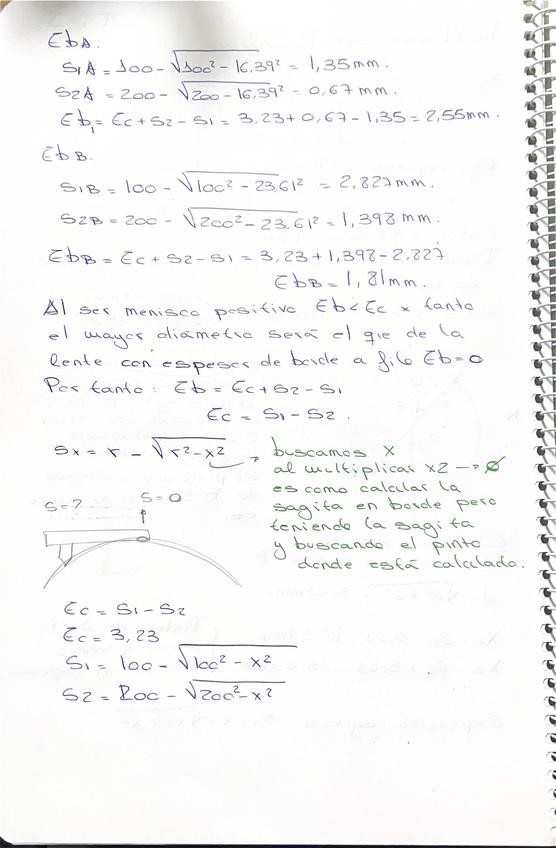 EbA.
S1A = 100 - √100² - 16,39² = 1,35 mm.
S2A = 200 - √200 - 16,39² = 0,67 mm.
Eb1 = Ec + S2 - S1 = 3,23 + 0,67 - 1,35 = 2,55 mm.
Eb B.
S1B = 100 - √100² - 23,61² = 2,827 mm.
S2B = 200 - √200² - 23,61² = 1,398 mm.
EbB = Ec + S2 - S1 = 3,23 + 1,398 - 2,827
EbB = 1,81 mm.
Al ser menisco positivo Eb < Ec x tanto
el mayor diámetro será el que de la
lente con espesor de borde a filo Eb = 0
Por tanto: Eb = Ec + S2 - S1
Ec = S1 - S2.
Sx = r - √r² - x²
buscamos x
al multiplicar x2 → ø
es como calcular la
sagita en borde pero
teniendo la sagita
y buscando el pinto
donde está calculada.
S = ?
S = 0
Ec = S1 - S2
Ec = 3,23
S1 = 100 - √100² - x²
S2 = 200 - √200² - x²